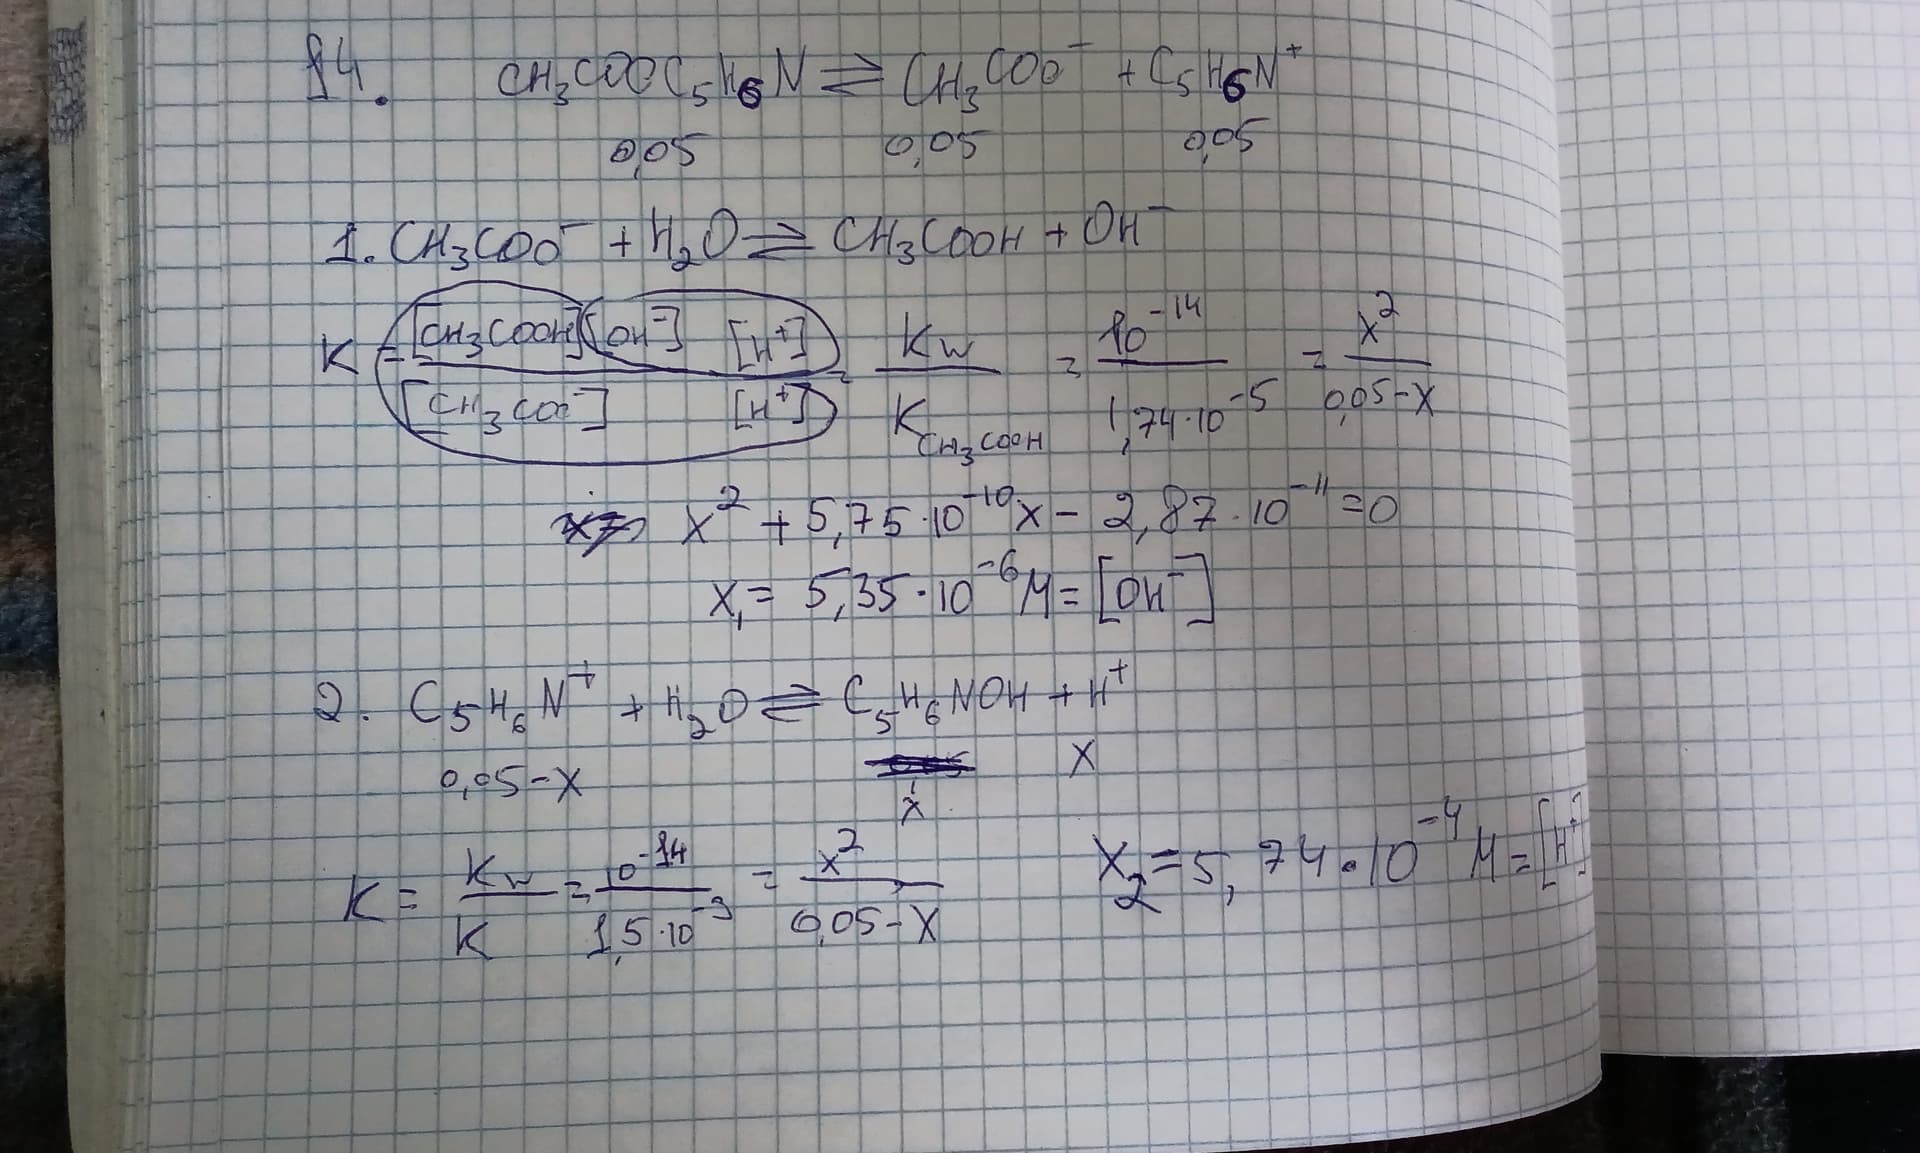 14. CH₃COOC₅H₆N ⇌ CH₃COO⁻ + C₅H₆N⁺
0,05 0,05 0,05
1. CH₃COO⁻ + H₂O ⇌ CH₃COOH + OH⁻
K = [CH₃COOH][OH⁻] [H⁺] / [CH₃COO⁻] [H⁺] = Kw / K CH₃COOH = 10⁻¹⁴ / 1,74·10⁻⁵ = x² / 0,05-x
x² + 5,75·10⁻¹⁰x - 2,87·10⁻¹¹ = 0
x₁ = 5,35·10⁻⁶ M = [OH⁻]
2. C₅H₆N⁺ + H₂O ⇌ C₅H₆NOH + H⁺
0,05-x x x
K = Kw / K = 10⁻¹⁴ / 1,5·10⁻⁹ = x² / 0,05-x x₂ = 5,74·10⁻⁴ M = [H⁺]